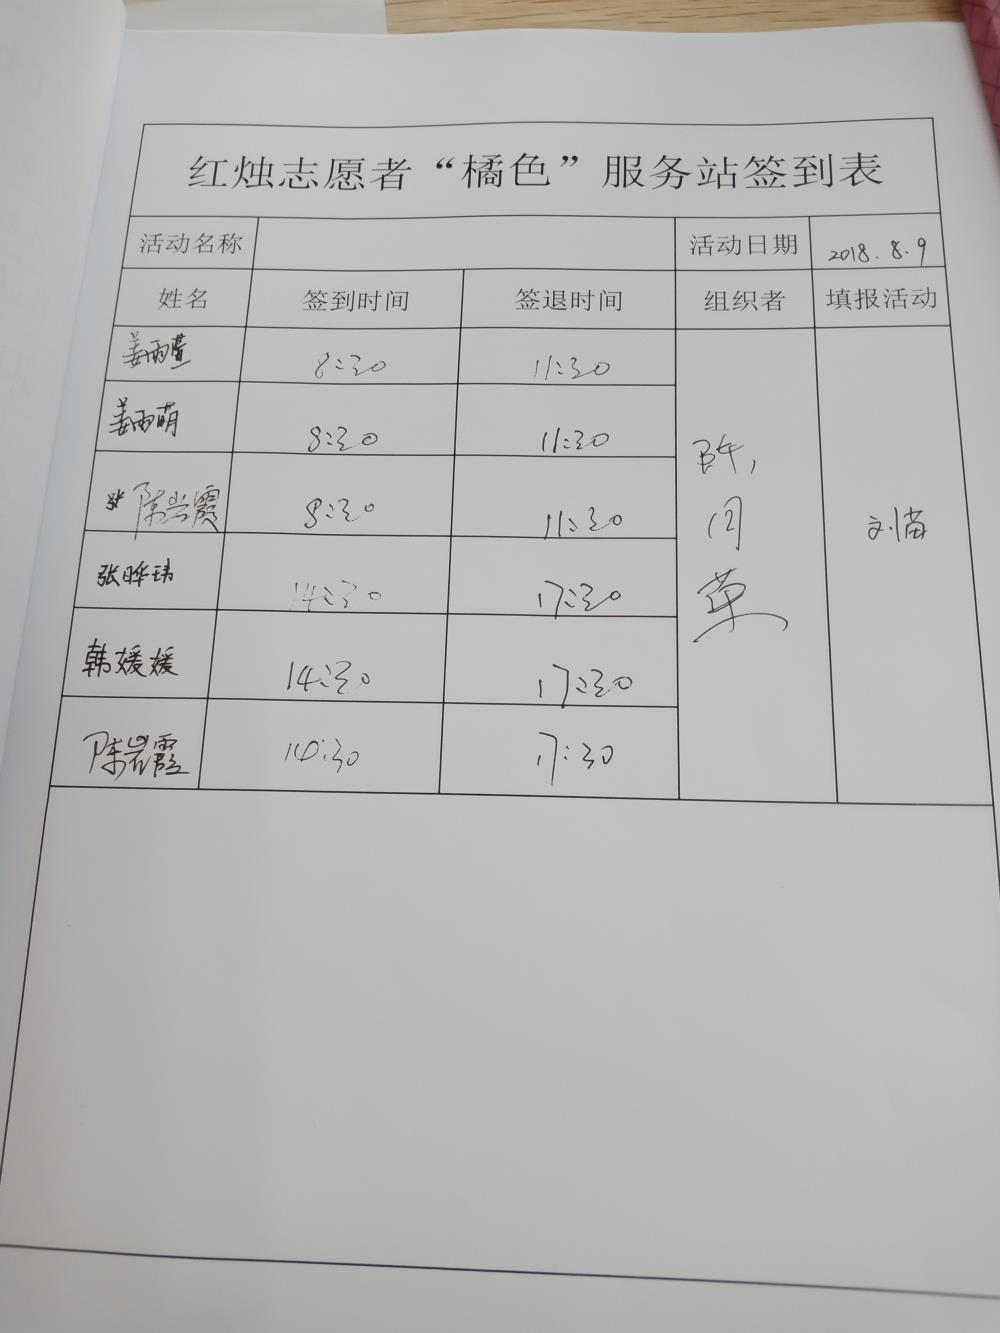 红烛志愿者“橘色”服务站签到表
活动名称 活动日期 2018.8.9
姓名 签到时间 签退时间 组织者 填报活动
姜雨萱 8:30 11:30
姜雨萌 8:30 11:30
张 陈岩霞 8:30 11:30
张晔玮 14:30 17:30
韩媛媛 14:30 17:30
陈岩霞 14:30 17:30
刘苗